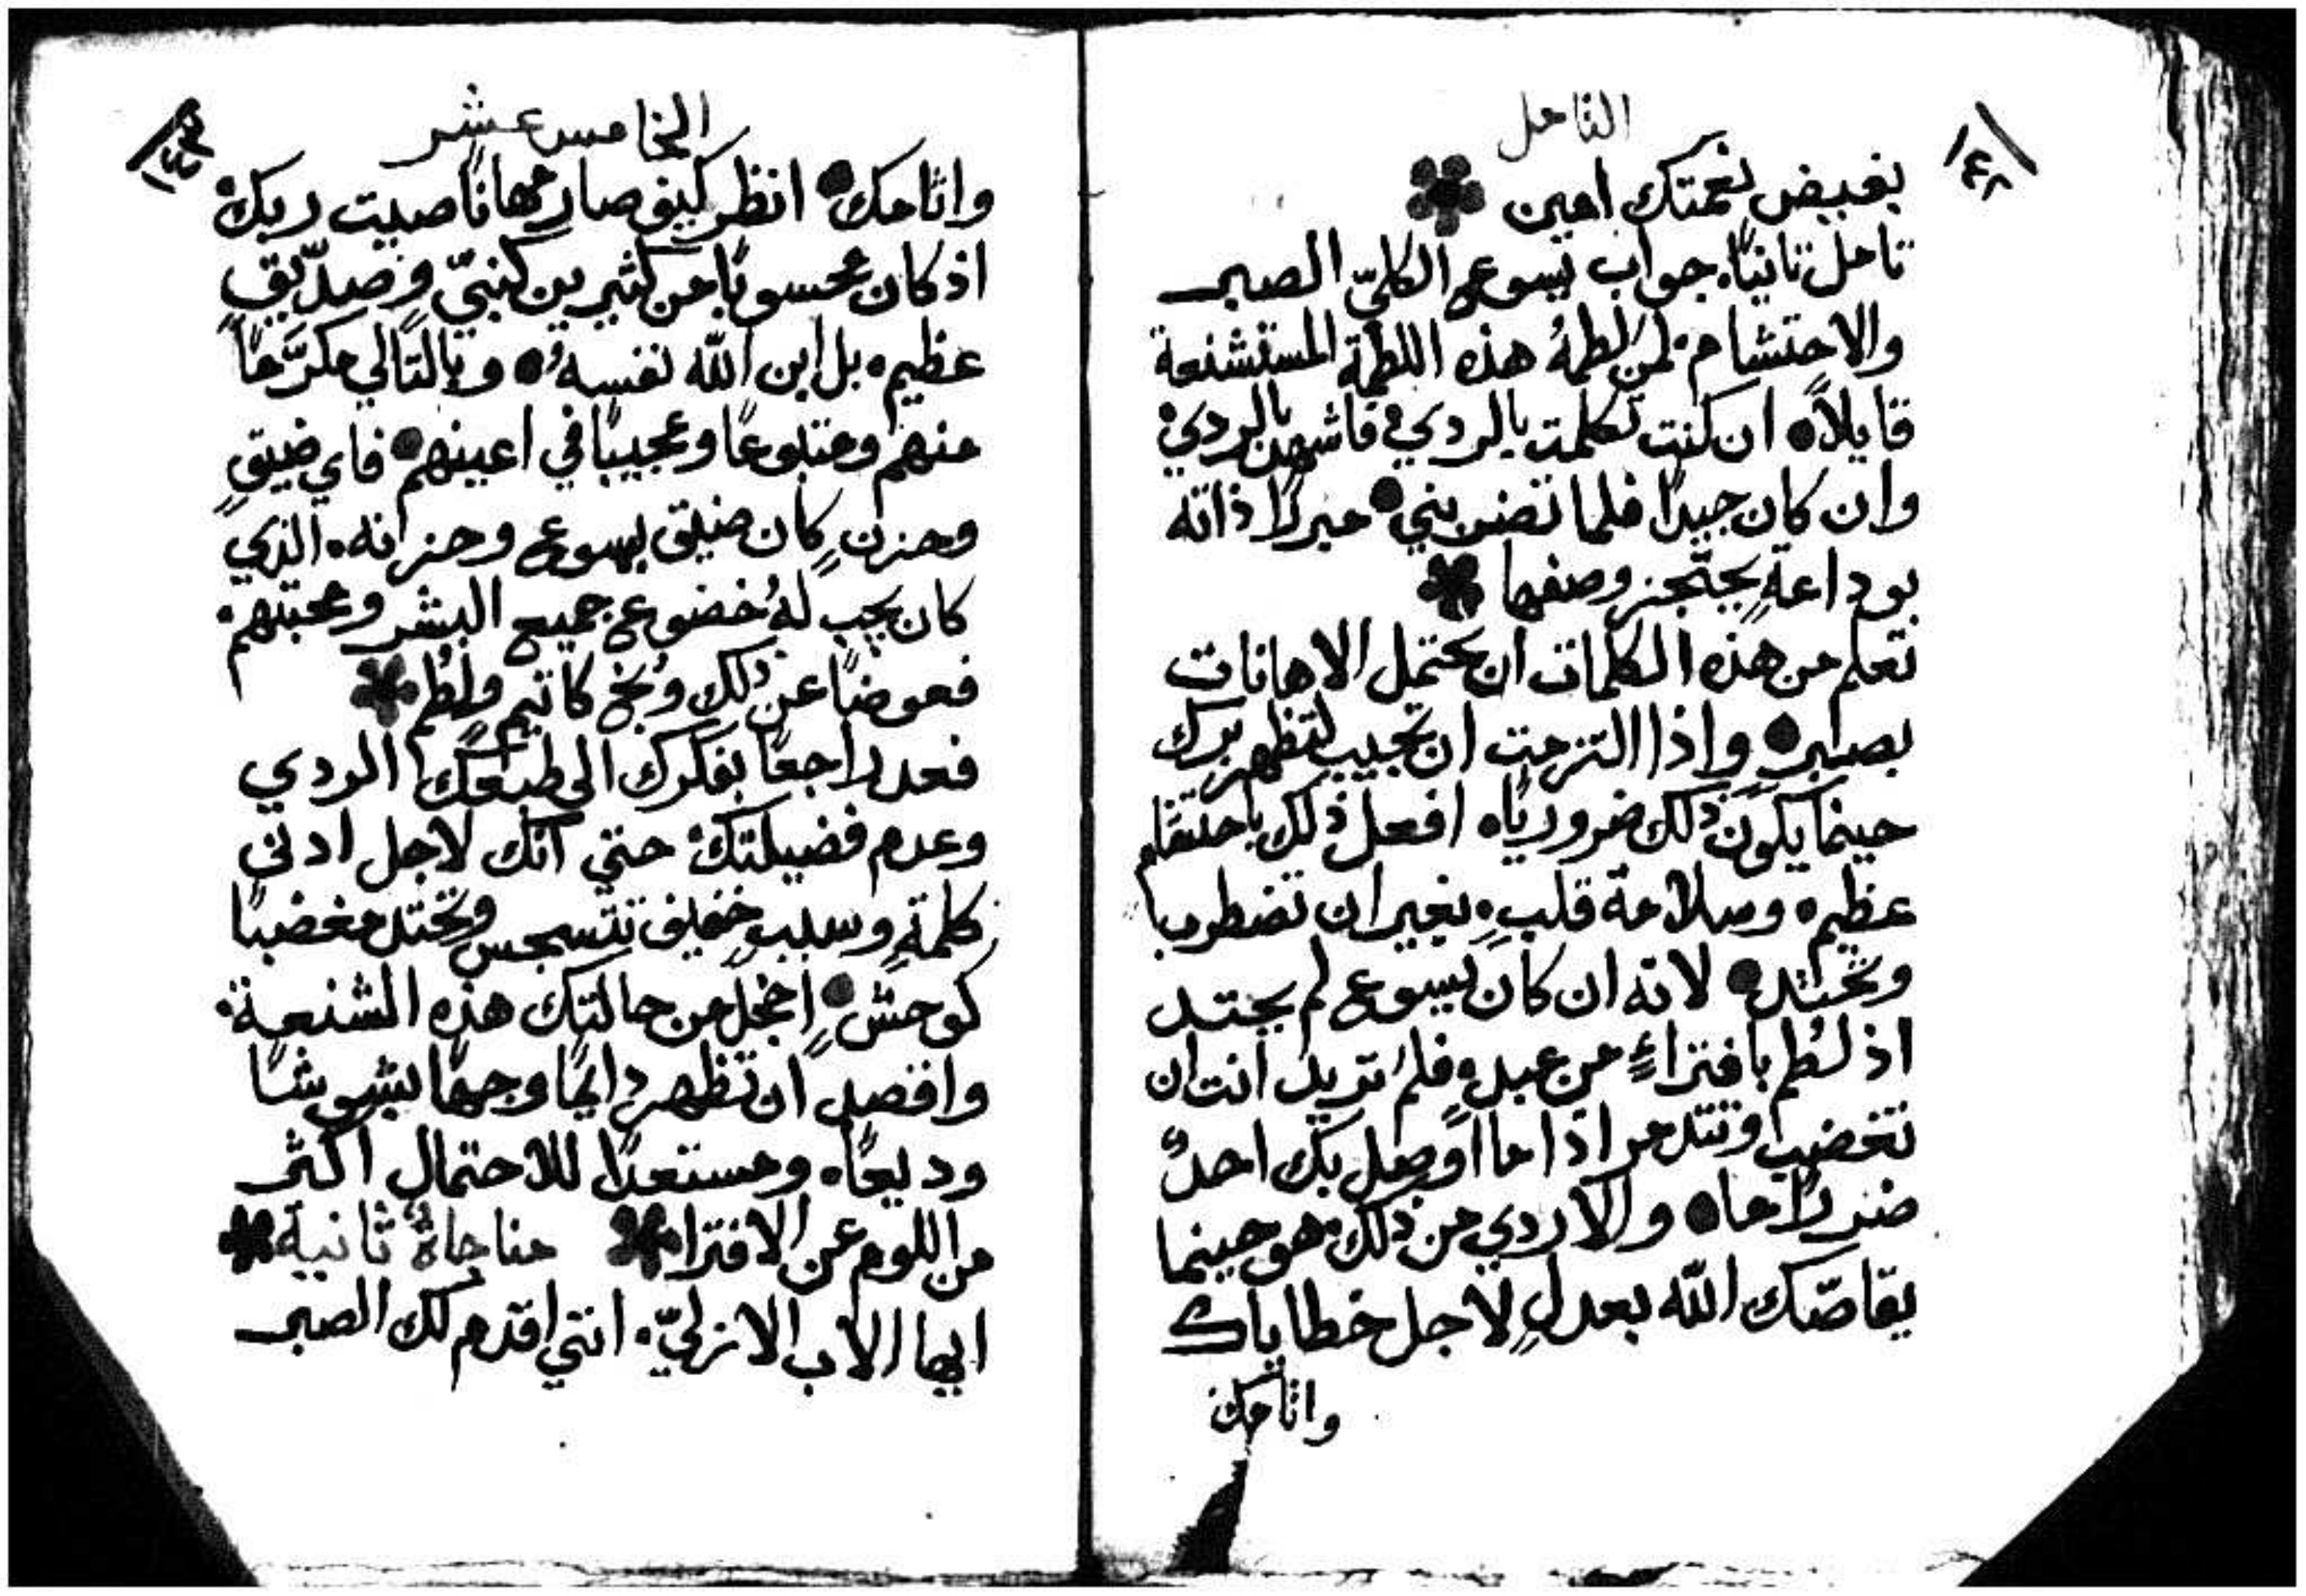 التامل
١٤٢
بفيض نعمتك امين
تامل ثانيًا، جواب يسوع الكليّ الصبر
والاحتشام، لمن لطمهُ هذه اللطمة المستشنعة
قايلاً. ان كنت تكلمت بالردي، فاشهد بالردي،
وان كان جيدًا فلما تضربني. مبررًا ذاته
بوداعةٍ يعجز وصفها
تعلم من هذه الكلمات ان تحتمل الاهانات
بصبرٍ. واذا التزمت ان تجيب لتظهر برك
حينما يكون ذلك ضروريًا، افعل ذلك باحتشام
عظيم، وسلامة قلبٍ، بغير ان تضطرب
وتحتد. لانه ان كان يسوع لم يحتد
اذ لُطم بافتراءٍ من عبدٍ، فلمَ تريد انت ان
تغضب وتتذمر اذا ما اوصل بك احدٌ
ضررًا ما. والاردي من ذلك، هو حينما
يقاصّك الله بعدلٍ لاجل خطاياك
واثامك
الخامس عشر
١٤٣
واثامك. انظر كيف صار مهانًا صيت ربك،
اذ كان محسوبًا من كثيرين كنبيّ وصدّيقٍ
عظيم، بل ابن الله نفسهُ. وبالتالي مكرَّمًا
منهم ومتبوعًا وعجيبًا في اعينهم. فاي ضيقٍ
وحزنٍ كان ضيق يسوع وحزانه، الذي
كان يجب لهُ خضوع جميع البشر ومحبتهم،
فعوضًا عن ذلك وُبخ كاثيم ولُطم
فعد راجعًا بفكرك الى طبعك الردي
وعدم فضيلتك، حتي انك لاجل ادنى
كلمةٍ وسببٍ خفيف تتسجس وتحتد مغضبًا
كوحشٍ. اخجل من حالتك هذه الشنعة،
واقصد ان تظهر دايمًا وجهًا بشوشًا
وديعًا، ومستعدًا للاحتمال اكثر
من اللوم عن الافترا مناجاةٌ ثانية
ايها الاب الازليّ، انني اقدم لك الصبر